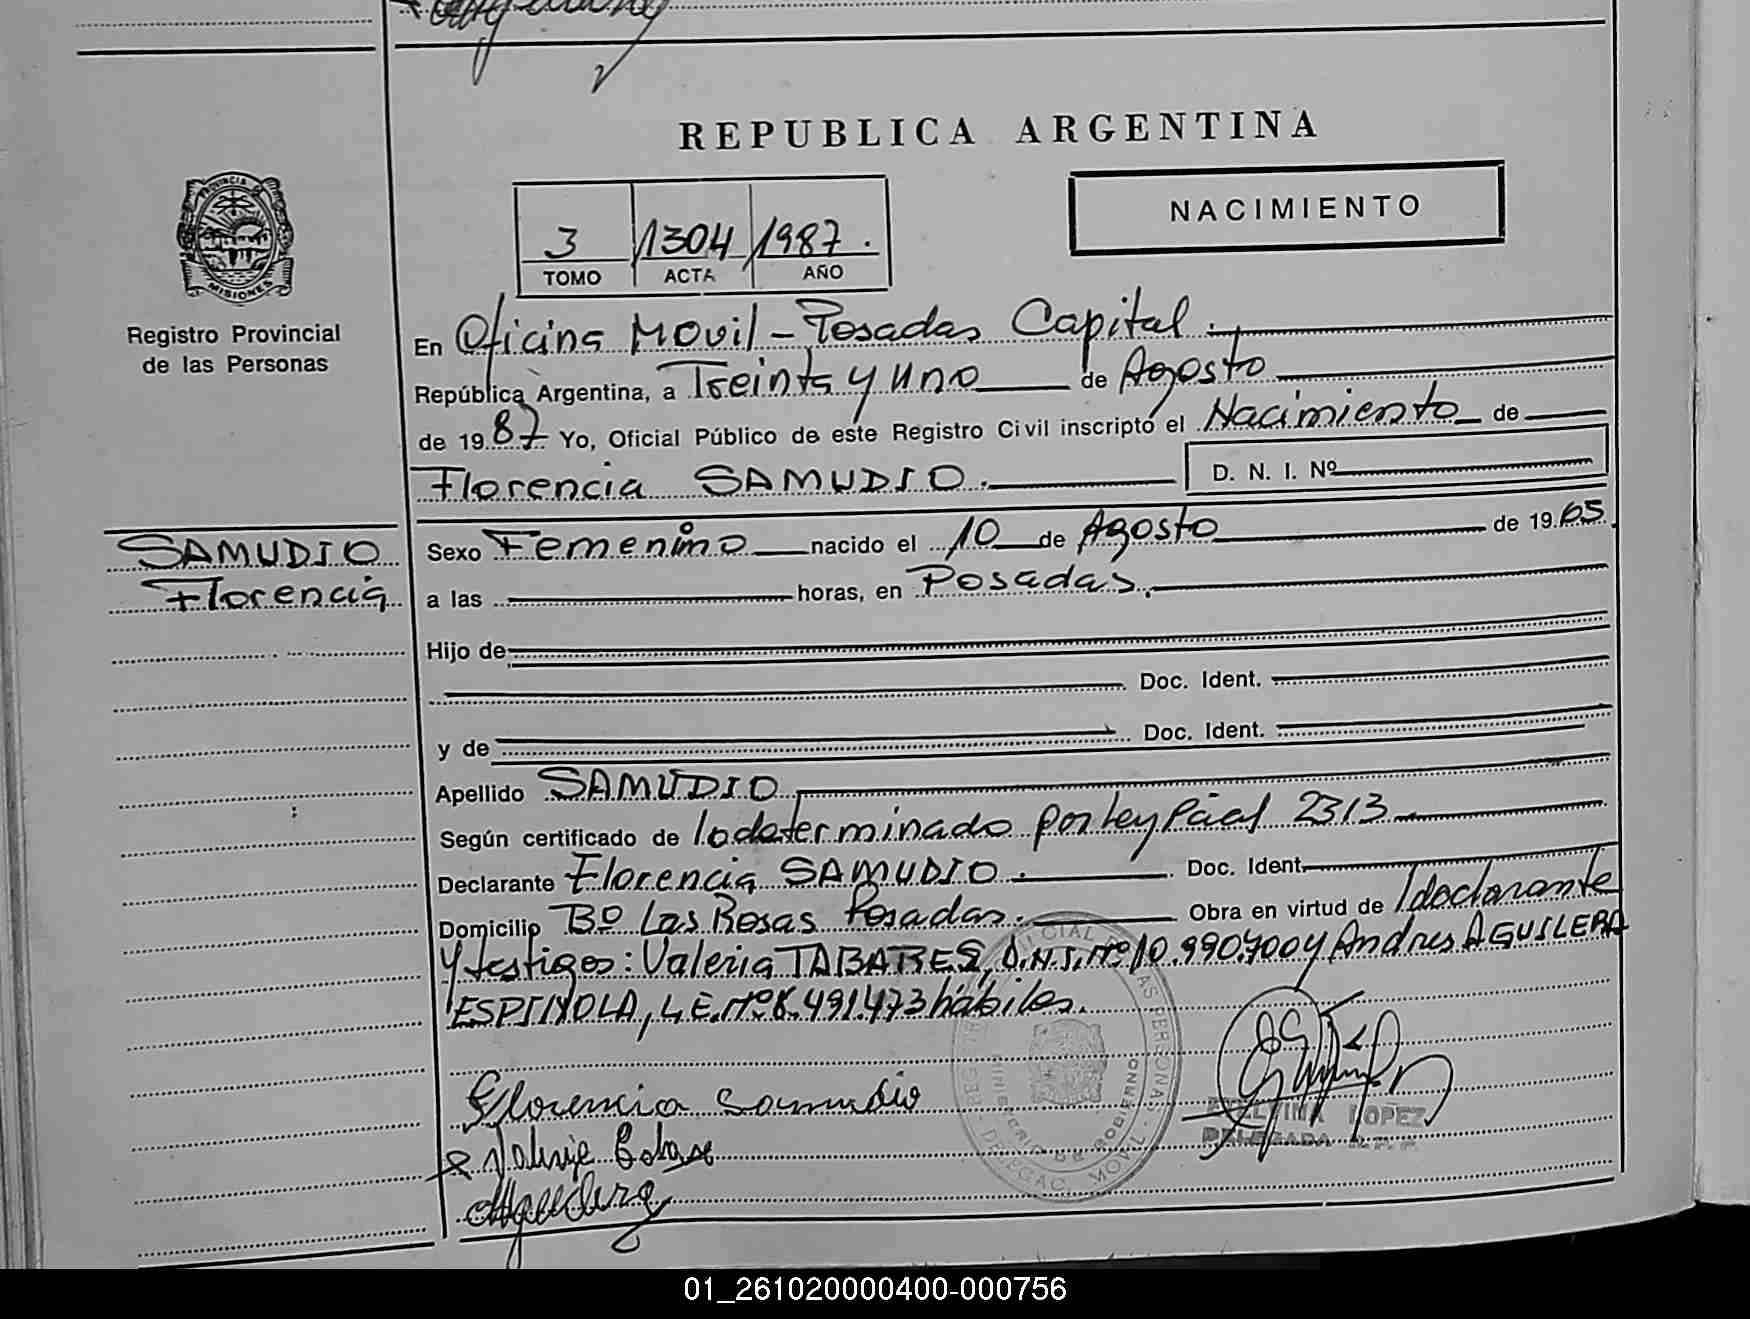 REPUBLICA ARGENTINA
PROVINCIA
MISIONES
Registro Provincial
de las Personas
3 1304 1987.
TOMO ACTA AÑO
NACIMIENTO
En Oficina Movil - Posadas Capital.
República Argentina, a Treinta y Uno de Agosto
de 1987 Yo, Oficial Público de este Registro Civil inscripto el Nacimiento de
Florencia SAMUDIO. D. N. I. Nº
SAMUDIO
Florencia
Sexo Femenino nacido el 10 de Agosto de 1965
a las horas, en Posadas.
Hijo de
Doc. Ident.
y de Doc. Ident.
Apellido SAMUDIO
Según certificado de lo determinado por Ley Pcial 2313
Declarante Florencia SAMUDIO. Doc. Ident.
Domicilio Bº Las Rosas Posadas. Obra en virtud de / declarante
Y testigos: Valeria TABARES, D.N.I. Nº 10.990.700 y Andres AGUILERA
ESPINOLA, L.E. Nº 8.491.473 hábiles.
Florencia Samudio
Valeria
Aguilera
MINISTERIO DE GOBIERNO
DELEGAC. MOVIL
LOPEZ
DELEGADA R.P.P.
01_261020000400-000756